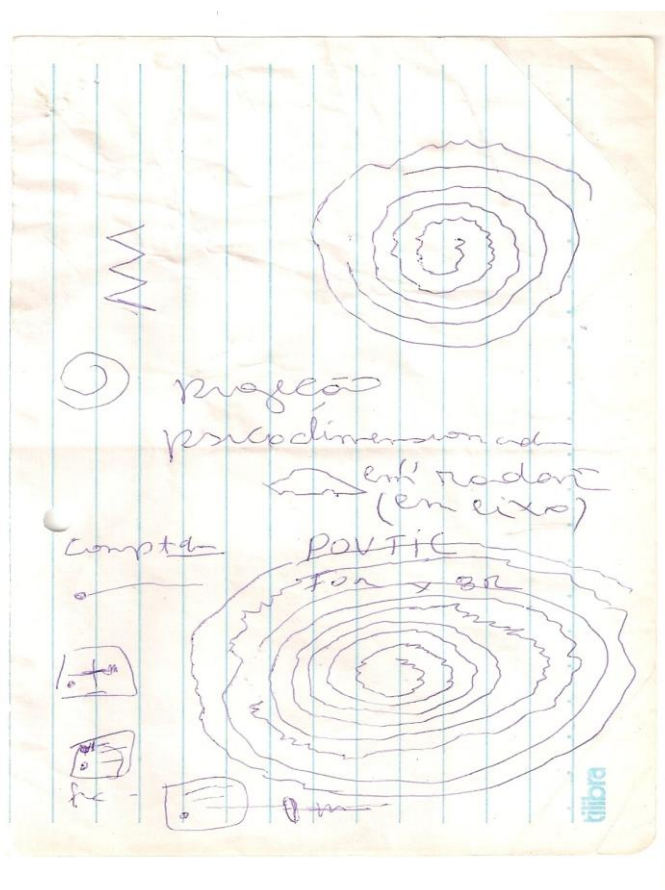 projeção
psicodimensionada
em radar
(em eixo)
compta
POVTIC
FOR x 3R
tilibra